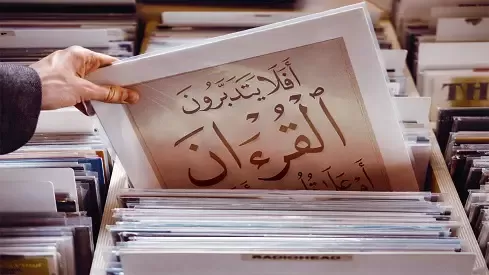 أَفَلَا يَتَدَبَّرُونَ
ٱلْقُرْءَانَ
أَمْ عَلَىٰ
TH
RADIOHEAD